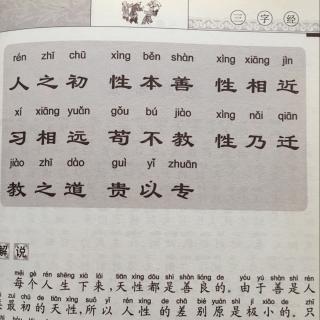 三字经
rén zhī chū xìng běn shàn xìng xiāng jìn
人之初 性本善 性相近
xí xiāng yuǎn gǒu bú jiào xìng nǎi qiān
习相远 苟不教 性乃迁
jiào zhī dào guì yǐ zhuān
教之道 贵以专
解 说
měi gè rén shēng xià lái tiān xìng dōu shì shàn liáng de yóu yú shàn shì rén
每个人生下来,天性都是善良的。由于善是人
zuì chū de tiān xìng suǒ yǐ rén xìng de chā bié yuán shì jí xiǎo de
最初的天性,所以人性的差别原是极小的。只